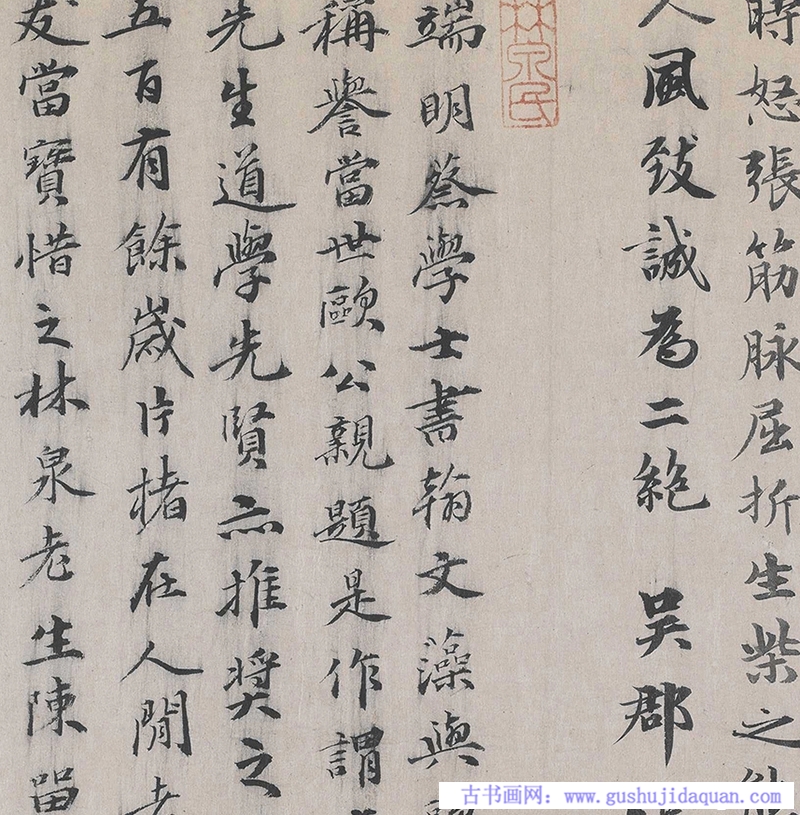 時怒張筋脉屈折生柴之
人風致誠為二絶 吳郡
林泉民
端明蔡學士書翰文藻與
稱譽當世歐公親題是作謂
先生道學先賢亦推奨之
五百有餘歲片楮在人間
友當寳惜之林泉老生陳留
古书画网：www.gushujidaquan.com